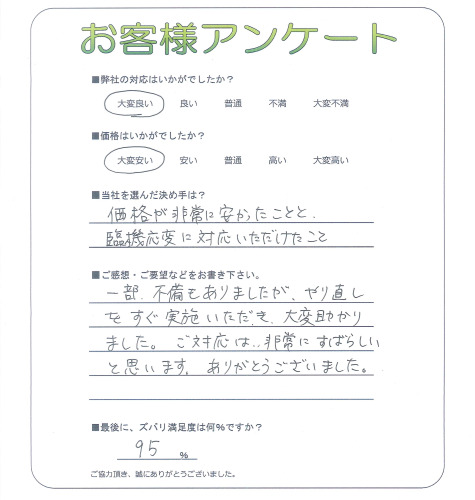 お客様アンケート
■弊社の対応はいかがでしたか？
大変良い 良い 普通 不満 大変不満
■価格はいかがでしたか？
大変安い 安い 普通 高い 大変高い
■当社を選んだ決め手は？
価格が非常に安かったことと、
臨機応変に対応いただけたこと
■ご感想・ご要望などをお書き下さい。
一部、不備もありましたが、やり直し
をすぐ実施いただき、大変助かり
ました。ご対応は、非常にすばらしい
と思います。ありがとうございました。
■最後に、ズバリ満足度は何%ですか？
95 %
ご協力頂き、誠にありがとうございました。